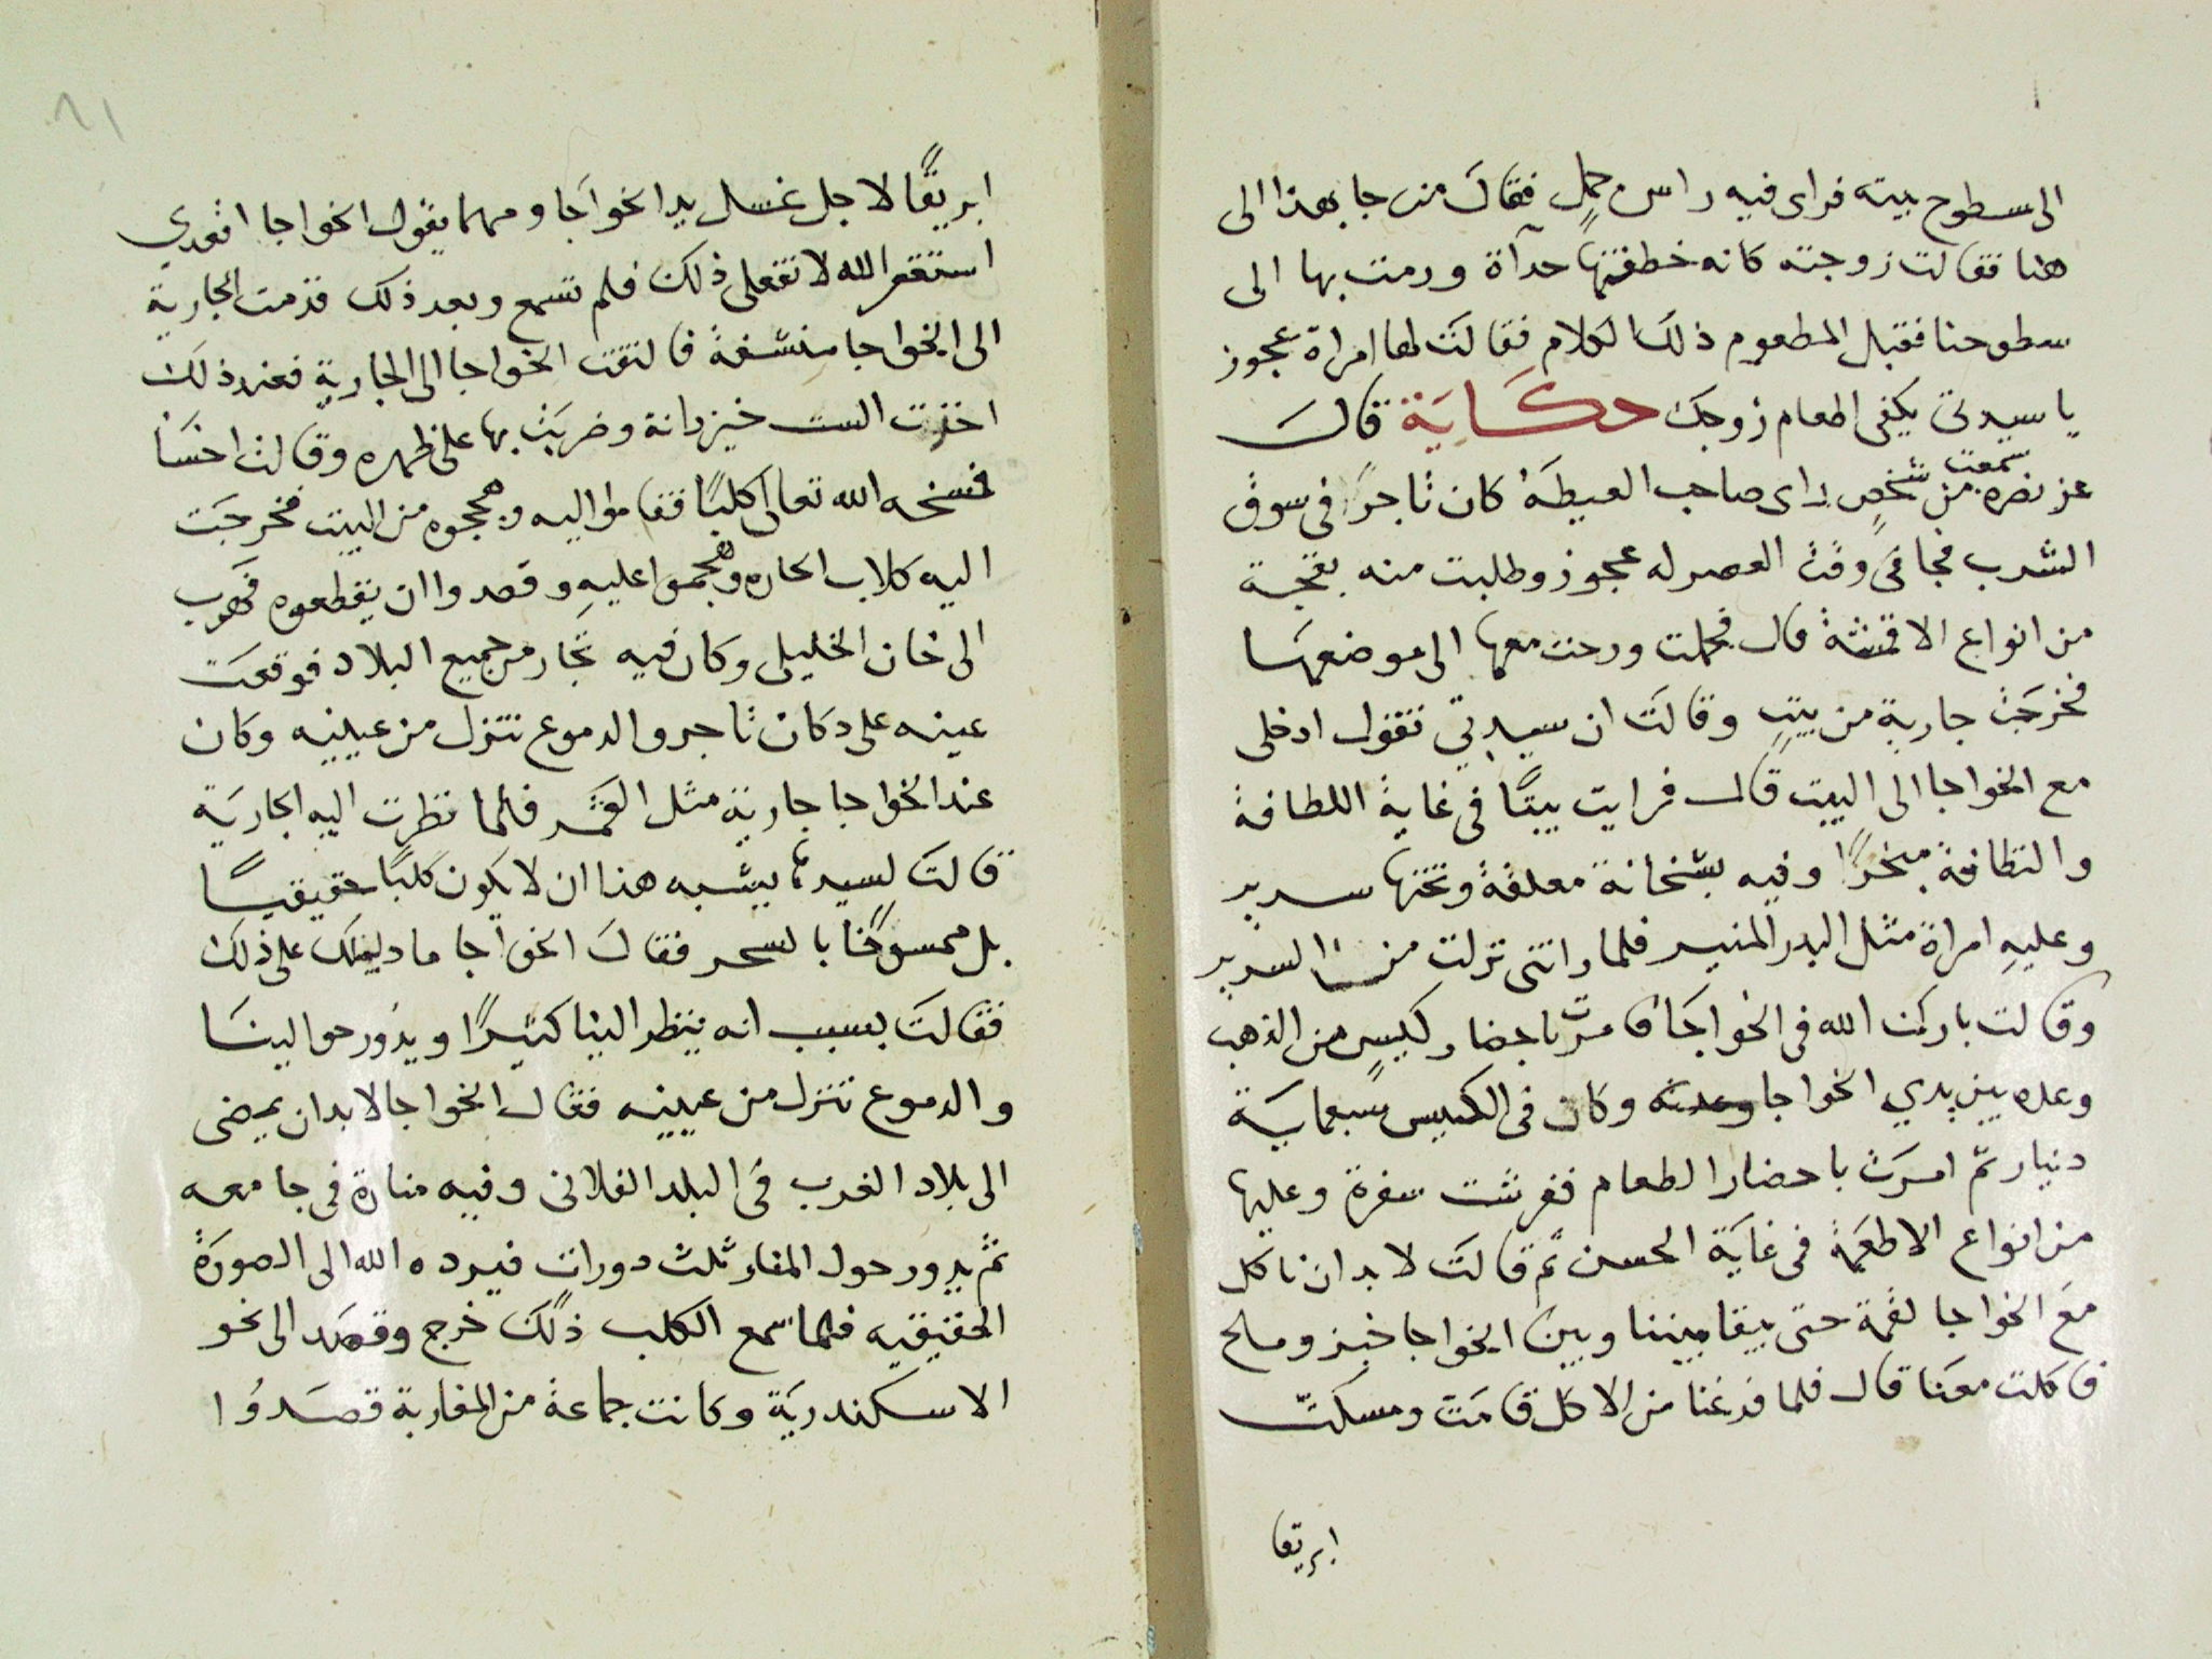 الى سطوح بيته فراى فيه راس جمل فقال من جا بهذا الى
هنا فقالت زوجته كانه خطفتها حدآة ورمت بها الى
سطوحنا فقبل المطعوم ذلك الكلام فقالت لها امراة عجوز
يا سيدتى يكفى اطعام زوجك حكاية قال
عز نضره سمعت من شخص راى صاحب العيطة كان تاجرًا فى سوق
الشرب فجا فى وقت العصر له عجوز وطلبت منه بقجة
من انواع الاقمشة قال فحملت ورحت معها الى موضعها
فخرجت جارية من بيت وقالت ان سيدتي تقول ادخلى
مع الخواجا الى البيت قال فرايت بيتًا فى غاية اللطافة
والنظافة مبخرًا وفيه بشخانة معلقة وتحتها سرير
وعليه امراة مثل البدر المنير فلما راتنى نزلت من السرير
وقالت باركت الله فى الخواجا ثم امرت باحضار كيس من الذهب
وعده بين يدي الخواجا وعدته وكان فى الكيس سبعماية
دنيار ثم امرت باحضار الطعام ففرشت سفرة وعليها
من انواع الاطعمة فى غاية الحسن ثم قالت لا بد ان ناكل
مع الخواجا لقمة حتى يبقا بيننا وبين الخواجا خبز وملح
فاكلت معنا قال فلما فرغنا من الاكل قامت ومسكت
ابريقا
ابريقًا لاجل غسل يد الخواجا ومهما يقول الخواجا اقعدي
استغفر الله لا تفعلى ذلك فلم تسمع وبعد ذلك قدمت الجارية
الى الخواجا منشفة فالتفت الخواجا الى الجارية فعند ذلك
اخذت الست خيزرانة وضربت بها على ظهره وقالت اخسأ
فمسخه الله تعالى كلبًا فقاموا اليه وهججوه من البيت فخرجت
اليه كلاب الحاره وهجموا عليه وقصدوا ان يقطعوه فهرب
الى خان الخليلى وكان فيه تجار من جميع البلاد فوقعت
عينه على دكان تاجر والدموع تنزل من عينيه وكان
عند الخواجا جارية مثل القمر فلما نظرت اليه الجارية
قالت لسيدها يشبه هذا ان لا يكون كلبًا حقيقيًا
بل ممسوخًا بالسحر فقال الخواجا ما دليلك على ذلك
فقالت بسبب انه ينظر الينا كثيرًا ويدور حوالينا
والدموع تنزل من عينيه فقال الخواجا لا بد ان يمضى
الى بلاد الغرب فى البلد الفلانى وفيه منارة فى جامعه
ثم يدور حول المنار ثلث دورات فيرده الله الى الصورة
الحقيقيه فلما سمع الكلب ذلك خرج وقصد الى نحو
الاسكندرية وكانت جماعة من المغاربة قصدوا